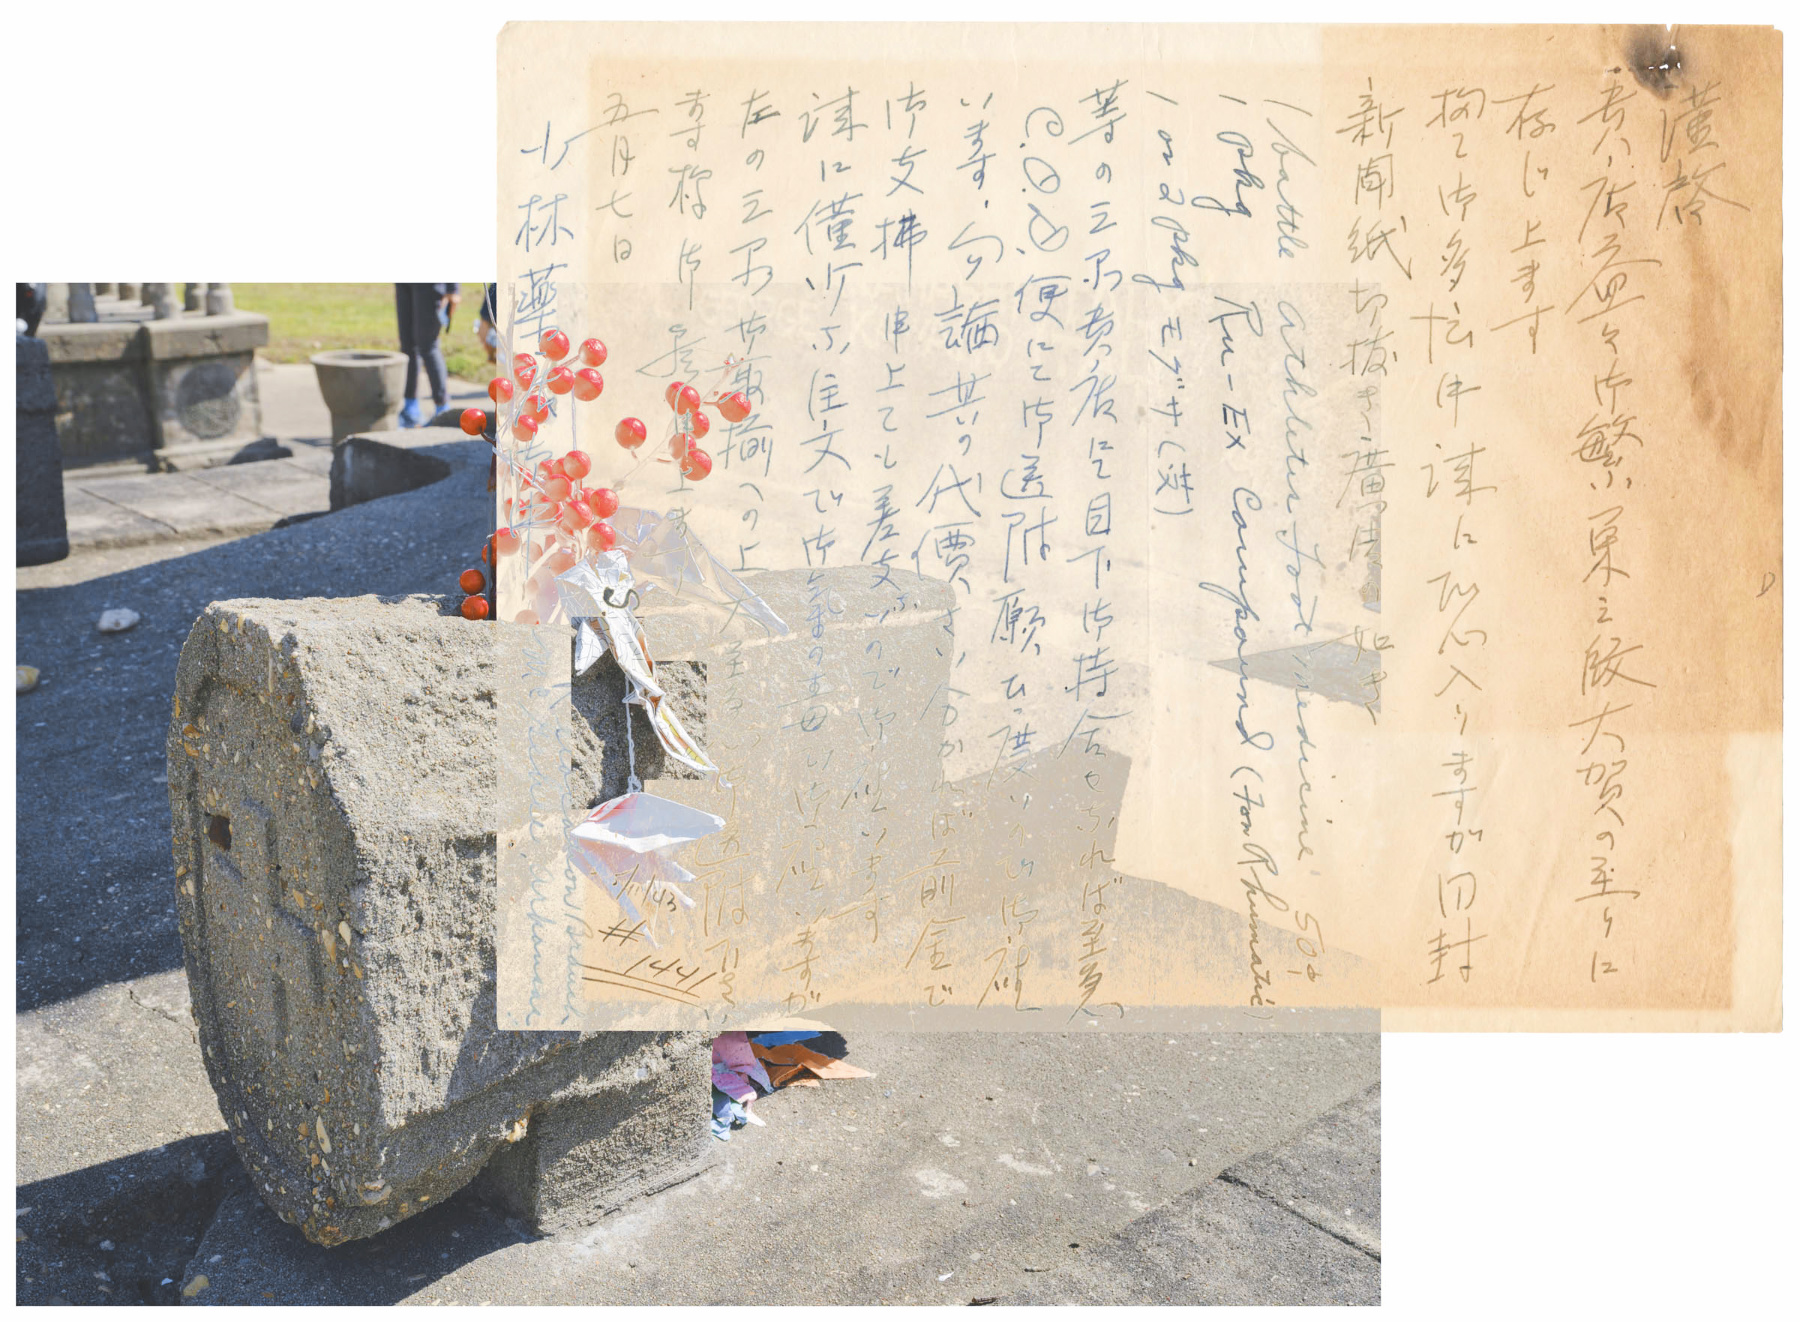 謹啓
貴店益々御繁栄之段大賀の至りに
存じ上ます
扨て御多忙中誠に恐入りますが同封
新聞紙切抜き廣告の如き
1 bottle athletes foot medicine 50¢
1 pkg Ru-Ex Compound (for Rhumatic)
1 or 2 pkg モグサ(灸)
等の三品貴店にて目下御持合せあれば至急
C.O.D.便にて御送附願ひ度いので御座
います、勿論其の代價さい分かれば前金で
御支拂申上ても差支ないので御座います
誠に僅少な注文で御氣の毒 御座いますが
左の三品御取揃への上 至急 御送附下さい
ます様御願上ます
五月七日
小林薬 御中
5/11/43
# 1441